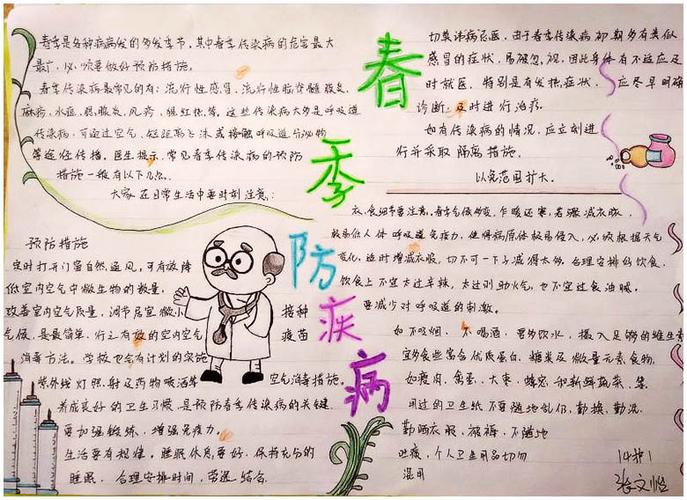 春季防疾病
春季是各种疾病发的多发季节,其中春季传染病的危害最大
最广,必须要做好预防措施。
春季传染病最常见的有:流行性感冒,流行性脑脊髓膜炎,
麻疹,水痘,腮腺炎,风疹,猩红热等。这些传染病大多是呼吸道
传染病,可通过空气,短距离飞沫或接触呼吸道分泌物
等途径传播。医生提示,常见春季传染病的预防
措施一般有以下几点。
大家在日常生活中要时刻注意:
预防措施
定时打开门窗自然通风,可有效降
低室内空气中微生物的数量,
改善室内空气质量,调节居室微小
气候,是最简单,行之有效的室内空气
消毒方法。学校卫会有计划的实施
紫外线灯照射及药物喷洒等
空气消毒措施。
接种
疫苗
养成良好的卫生习惯,是预防春季传染病的关键
要加强锻炼,增强免疫力。
生活要有规律。睡眠休息要好,保持充分的
睡眠,合理安排时间,劳逸结合。
切莫讳病忌医,由于春季传染病初期多有类似
感冒的症状,易被忽视,因此身体有不适应及
时就医,特别是有发热症状,应尽早明确
诊断,及时进行治疗。
如有传染病的情况,应立刻进
行并采取隔离措施。
以免范围扩大。
衣,食细节要注意。春季气候多变,乍暖还寒,若骤减衣服,
极易使人体呼吸道免疫力,使得病原体极易侵入,必须根据天气
变化,适时增减衣服,切不可一下子减得太多,合理安排好饮食,
饮食上不宜太过辛辣,太过则助火气,也不宜过食油腻。
要减少对呼吸道的刺激。
如不吸烟,不喝酒,要多饮水,摄入足够的维生素
宜多食些富含优质蛋白,糖类及微量元素食物,
如瘦肉,禽蛋,大枣,蜂蜜和新鲜蔬菜,等
用过的卫生纸不要随地乱仍,勤换,勤洗
勤晒衣服,被褥,不随地
吐痰,个人卫生用品切勿
混用
14护1